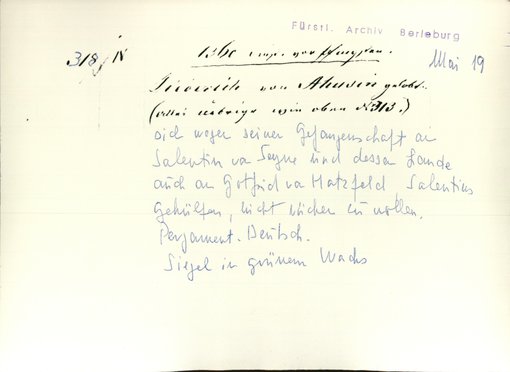 Fürstl. Archiv Berleburg
318/IV
1360 vor Pfingsten.
Mai 19
Friderich von gelobt.
(alles übrige wie oben N 313.)
sich wegen seiner Gefangenschaft an
Salentin von Seyne und dessen Lande
auch an Gotfrid von Hatzfeld Salentins
Gehülfen, nicht rächen zu wollen.
Pergament. Deutsch.
Siegel in grünem Wachs